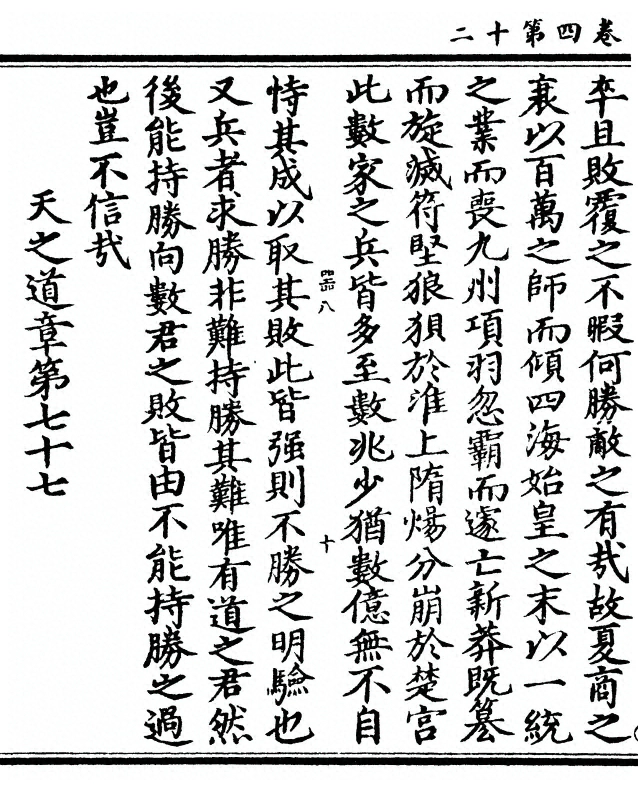 卷四第十二
卒且敗覆之不暇何勝敵之有㢤故夏商之
衰以百萬之師而傾四海始皇之末以一統
之業而喪九州項羽忽霸而遽亡新莽既篡
而旋滅符堅狼狽於淮上隋煬分崩於楚宮
此數家之兵皆多至數兆少猶數億無不自
器八 十
恃其成以取其敗此皆强則不勝之明驗也
又兵者求勝非難持勝其難唯有道之君然
後能持勝向數君之敗皆由不能持勝之過
也豈不信㢤
天之道章第七十七